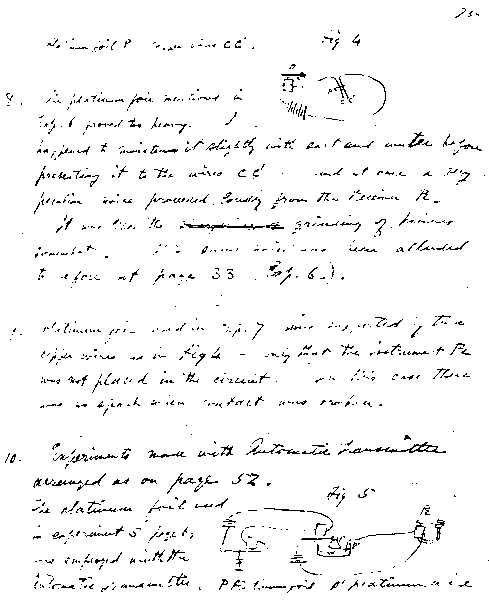 Platinum foil P. Copper wires CC'. Fig 4
8. The platinum foil mentioned in
Exp. 6 proved too heavy. I
happened to moisten it slightly with salt and water before
presenting it to the wires CC' and at once a very
peculiar noise proceeded loudly from the Receiver R.
It was like the grinding of
. This same noise was
to before at page 33 (Exp. 6.).
9. Platinum foil used in Exp. 7 was supported by two
copper wires as in Fig 4 – only that the instrument R
was not placed in the circuit. In this case there
was no spark when contact was broken.
10. Experiments made with Automatic Transmitter
arranged as on page 52.
The platinum foil used Fig 5
in experiment 5 page
was employed with the
Automatic Transmitter. P Platinum foil P' platinum